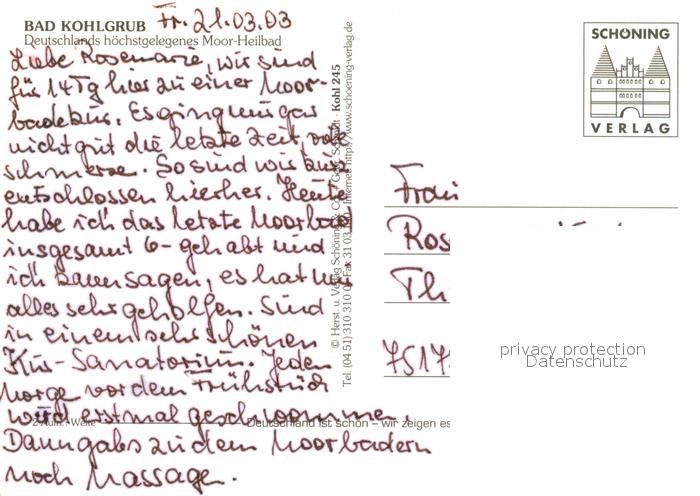 BAD KOHLGRUB Fr. 21.03.03
Deutschlands höchstgelegenes Moor-Heilbad
Liebe Rosemarie, wir sind
für 14 Tg hier zu einer Moor-
badekur. Es ging uns gar
nicht gut die letzte Zeit,
schmerze. So sind wir kurz
entschlossen hierher. Heute
habe ich das letzte Moorbad
insgesamt 6- gehabt und
ich kann sagen, es hat mir
alles sehr geholfen. Sind
in einem sehr schönen
Kur-Sanatorium. Jeden
Morge vor dem Frühstück
wird erstmal geschwomme.
Dann gabs zu dem Moorbadern
noch Massage.
Deutschland ist schön – wir zeigen es
© Herst. u. Verlag Schöning & Co. · Kohl 245
Tel. (04 51) 310 310 Fax 31 03 Internet: http://www.schoening-verlag.de
SCHÖNING
VERLAG
Frau
Ros
Th
7517
privacy protection
Datenschutz